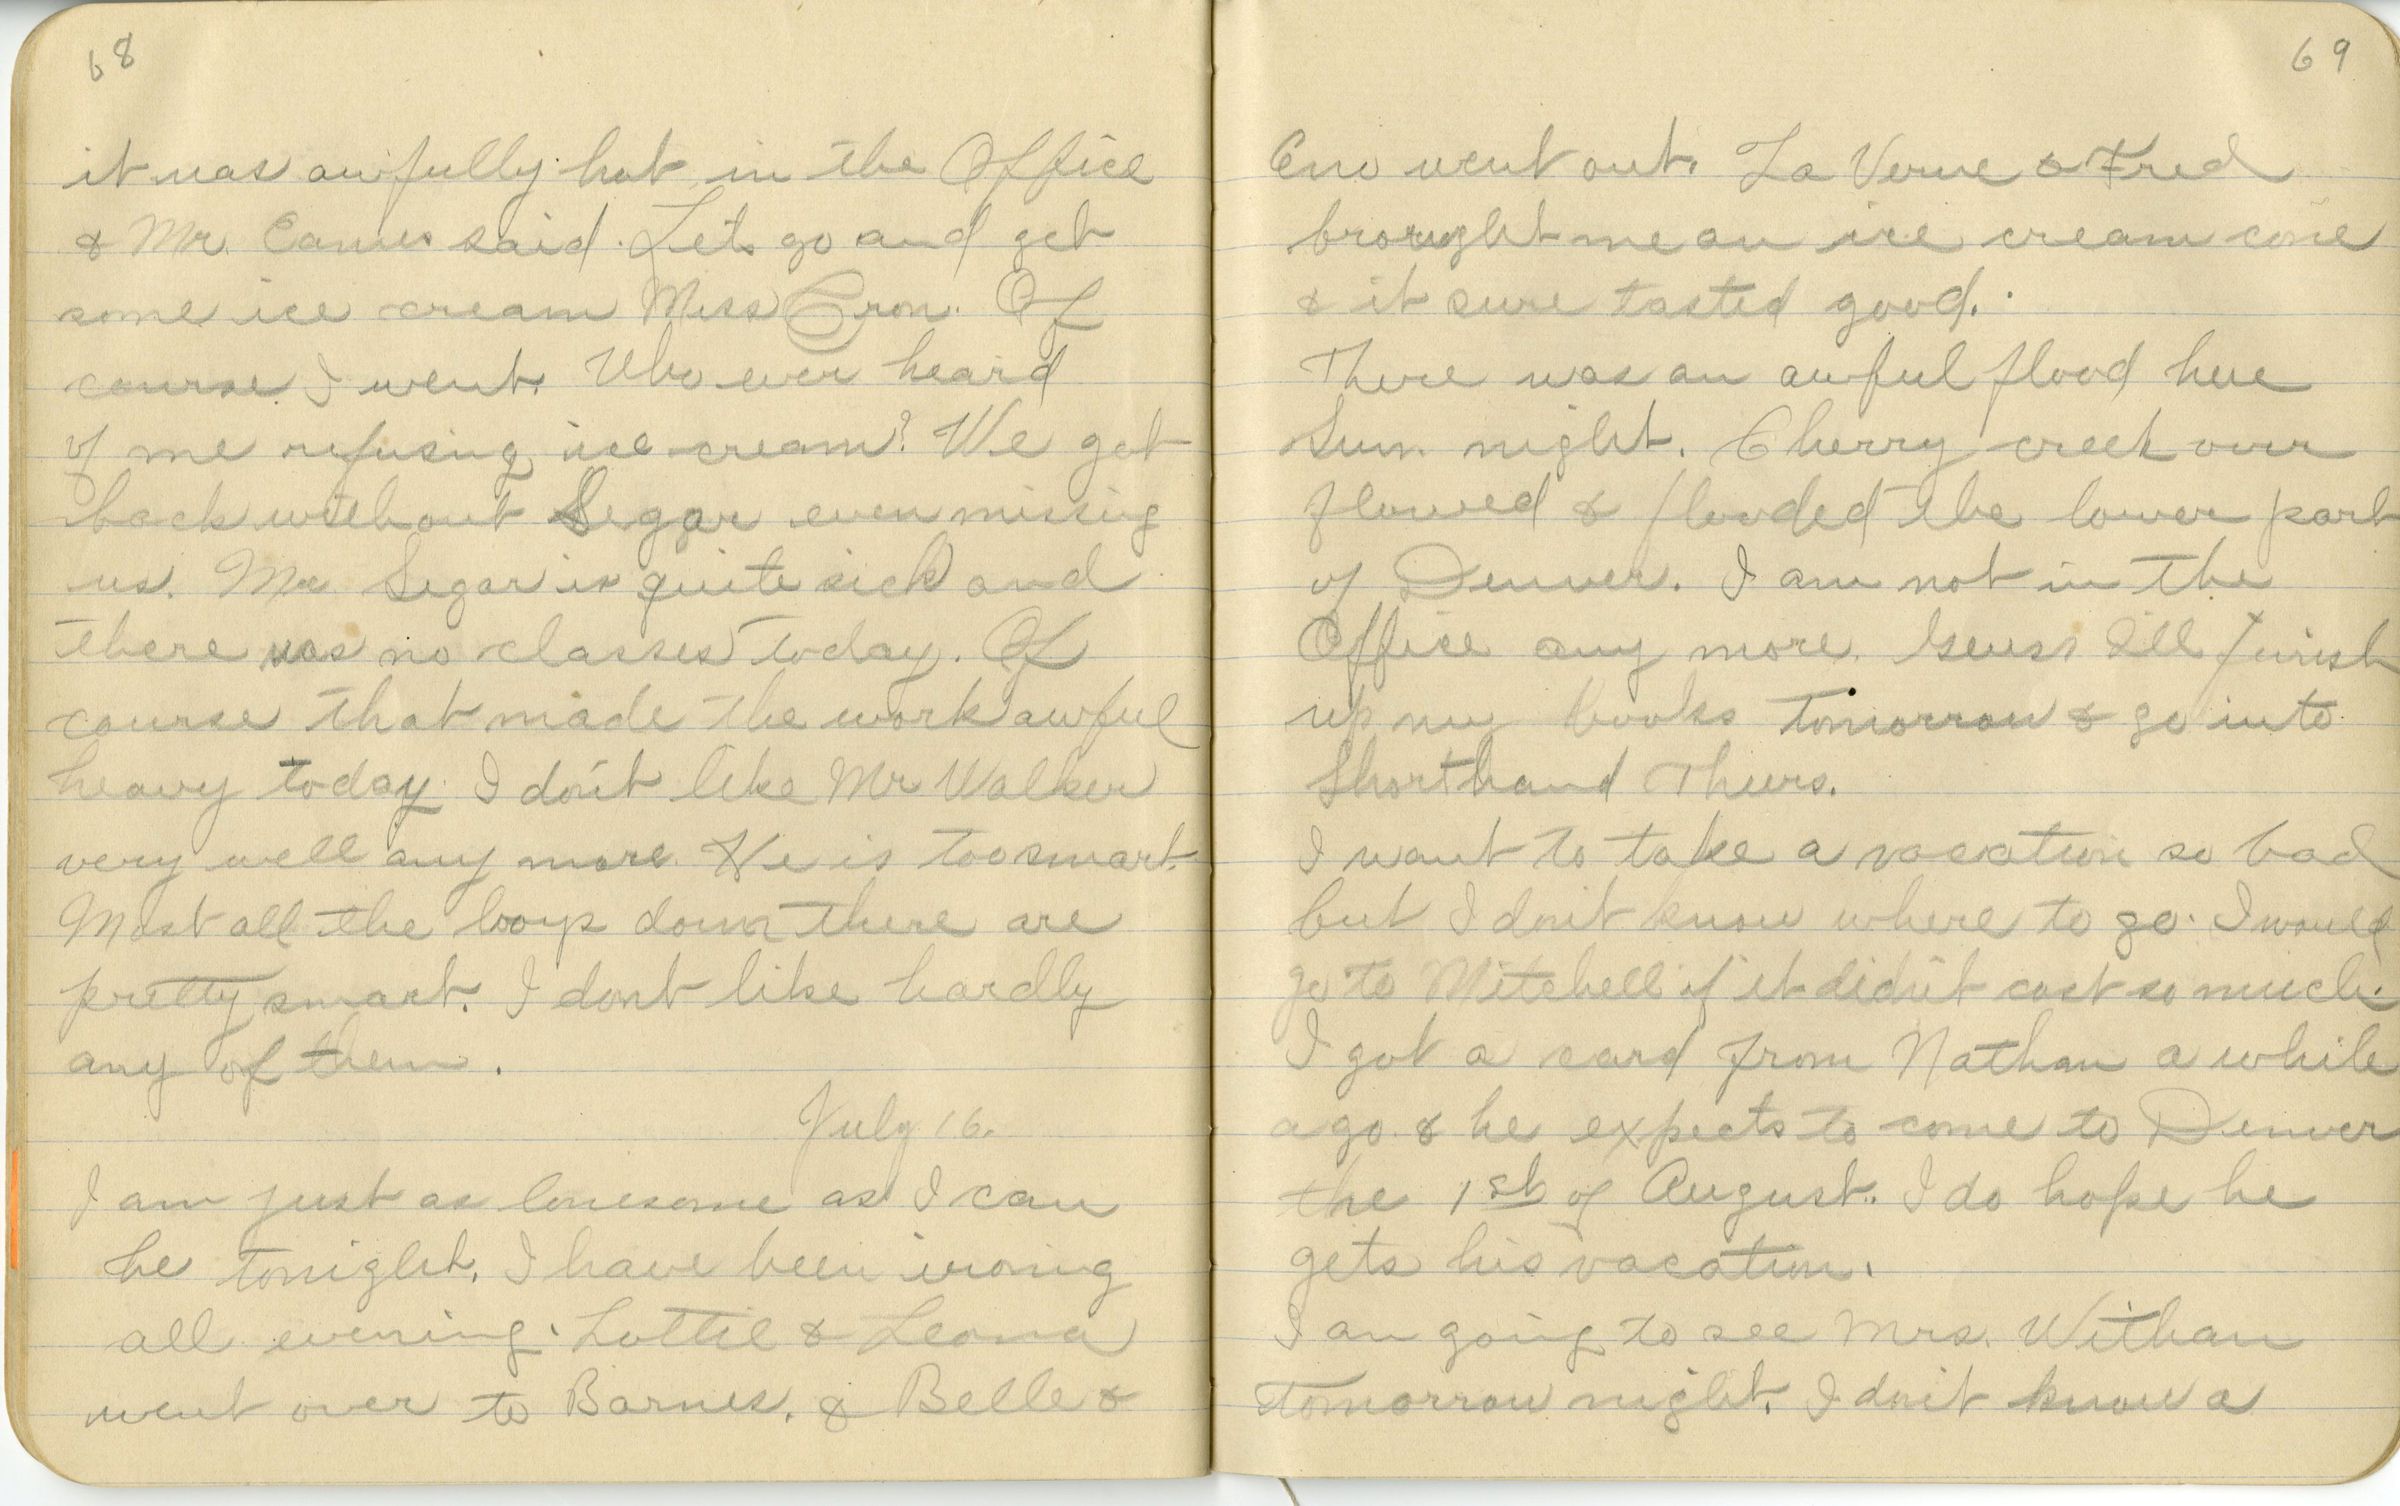 68
it was awfully hot in the Office
& Mr. Eames said. Let's go and get
some ice cream Miss Cron. Of
course I went. Who ever heard
of me refusing ice cream? We got
back without Segar even missing
us. Mr. Segar is quite sick and
there was no classes today. Of
course that made the work awful
heavy today. I don't like Mr Walker
very well any more. He is too smart.
Most all the boys down there are
pretty smart. I dont like hardly
any of them.
July 16.
I am just as lonesome as I can
be tonight. I have been ironing
all evening. Lottie & Leona
went over to Barnes. & Belle &
69
Eno went out. La Verne & Fred
brought me an ice cream cone
& it sure tasted good.
There was an awful flood here
Sun. night. Cherry creek over
flowed & flooded the lower part
of Denver. I am not in the
Office any more. Guess I'll finish
up my books tomorrow & go into
Shorthand Thurs.
I want to take a vacation so bad
but I don't know where to go. I would
go to Mitchell if it didn't cost so much.
I got a card from Nathan a while
ago & he expects to come to Denver
the 1st of August. I do hope he
gets his vacation.
I am going to see Mrs. Witham
tomorrow night. I don't know a